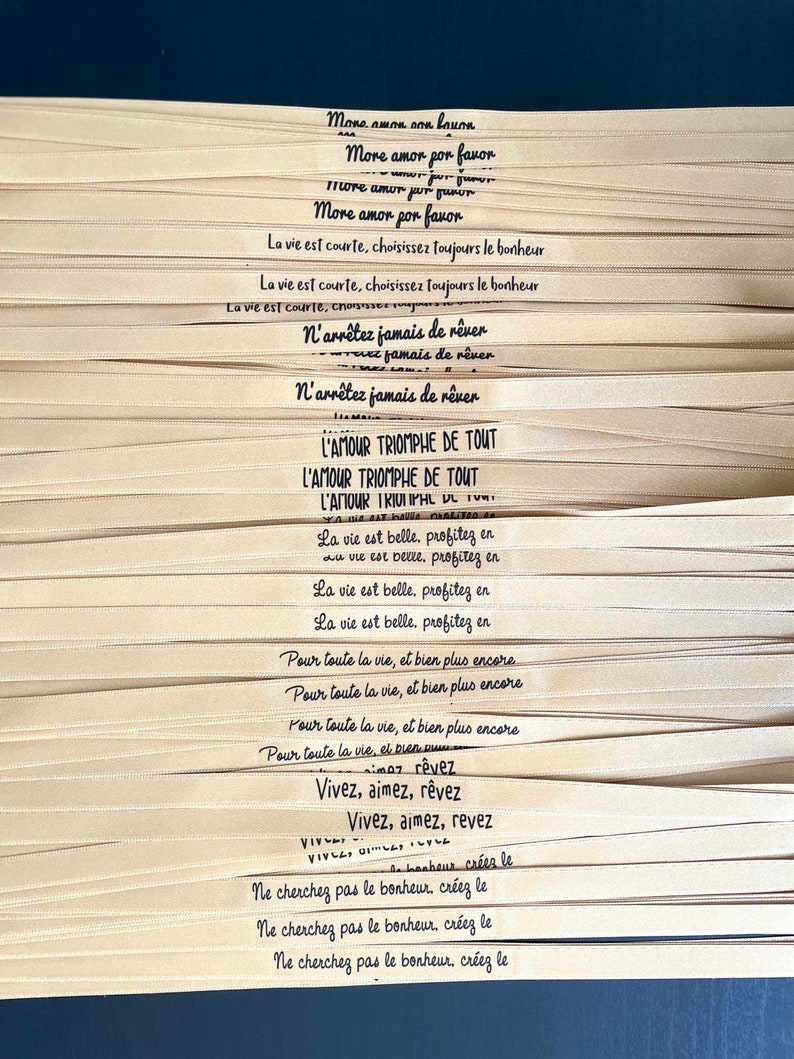 More amor por favor
More amor por favor
More amor por favor
More amor por favor
More amor por favor
La vie est courte, choisissez toujours le bonheur
La vie est courte, choisissez toujours le bonheur
La vie est courte, choisissez toujours le bonheur
N'arrêtez jamais de rêver
N'arrêtez jamais de rêver
N'arrêtez jamais de rêver
L'AMOUR TRIOMPHE DE TOUT
L'AMOUR TRIOMPHE DE TOUT
L'AMOUR TRIOMPHE DE TOUT
La vie est belle, profitez en
La vie est belle, profitez en
La vie est belle, profitez en
La vie est belle, profitez en
La vie est belle, profitez en
Pour toute la vie, et bien plus encore
Pour toute la vie, et bien plus encore
Pour toute la vie, et bien plus encore
Pour toute la vie, et bien plus
Vivez, aimez, rêvez
Vivez, aimez, rêvez
Vivez, aimez, revez
Vivez, aimez, rêvez
le bonheur, créez le
Ne cherchez pas le bonheur, créez le
Ne cherchez pas le bonheur, créez le
Ne cherchez pas le bonheur, créez le